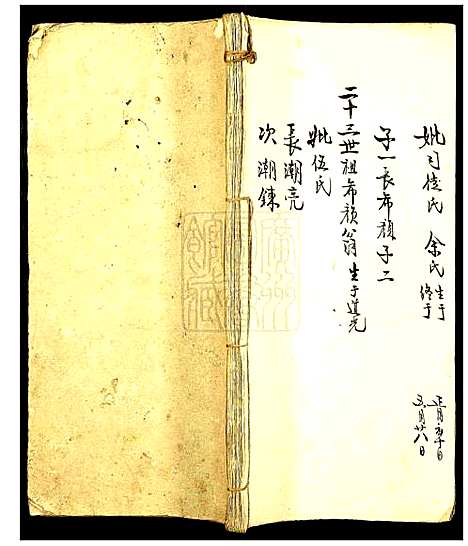 妣司徒氏 余氏 生于 正月初十日
终于 五月廿八日
子一長希顏子二
二十三世祖希顏翁 生于道光
妣伍氏
長潮亮
次潮鍊